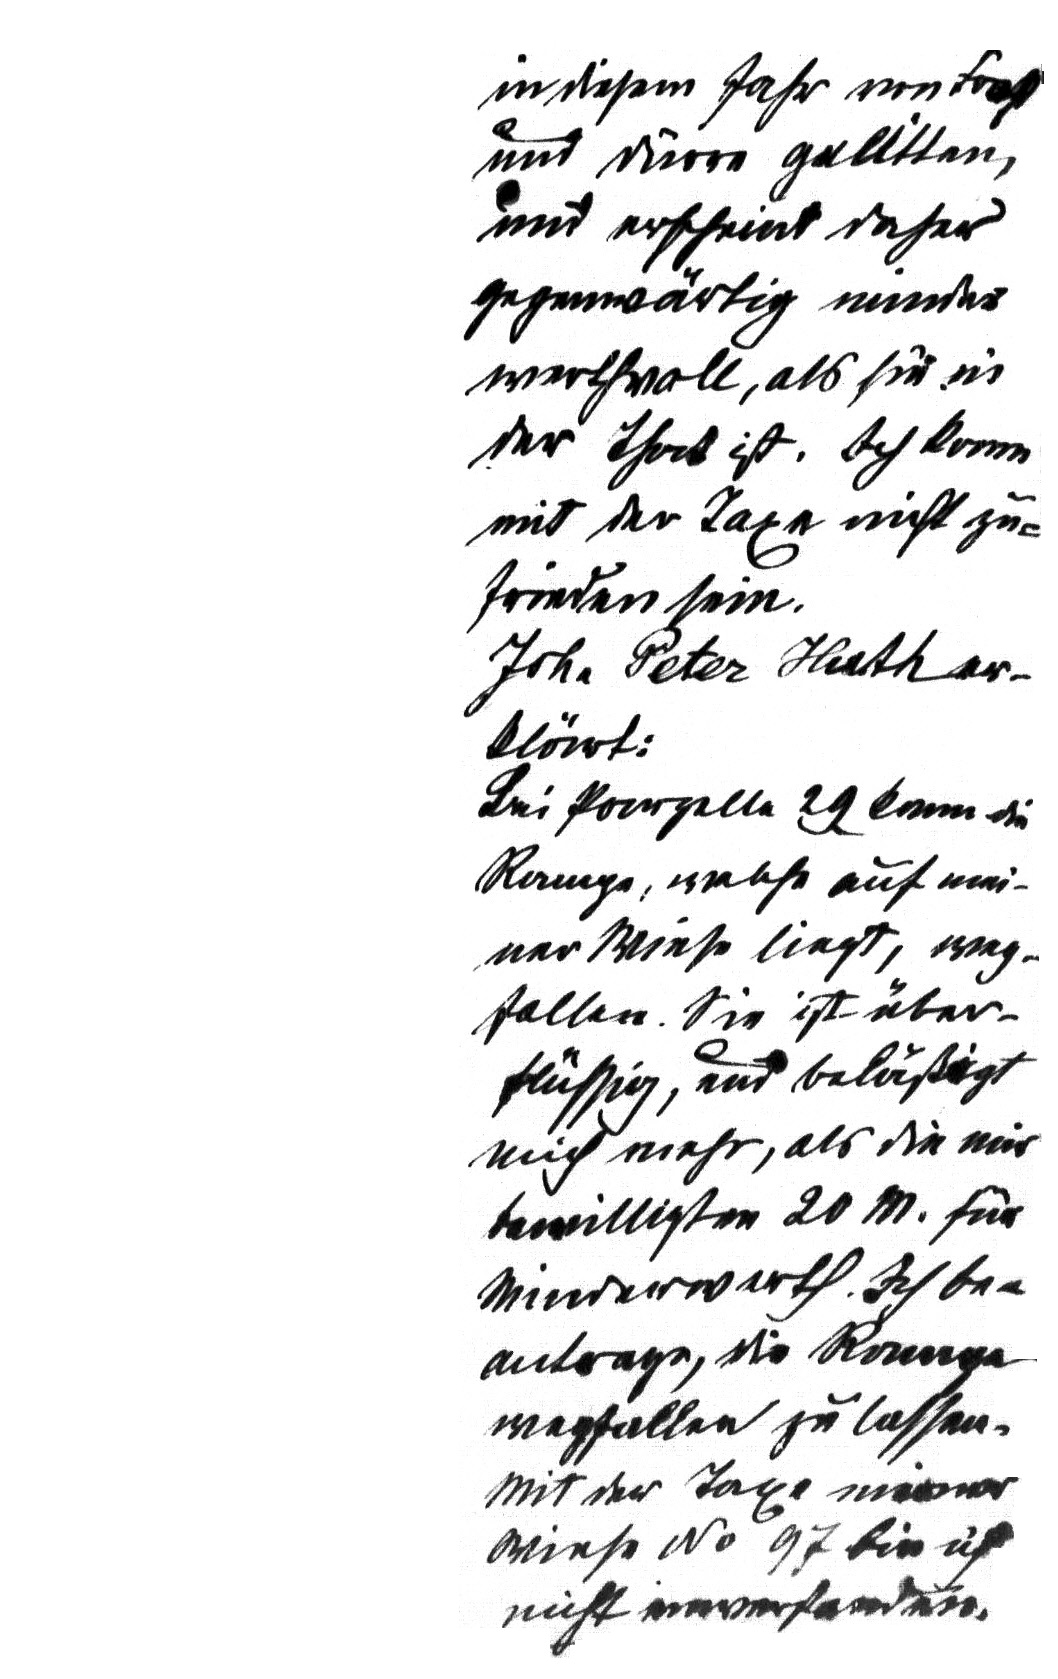 in diesem Jahr von Frost
und Dürre gelitten,
und erscheint daher
gegenwärtig minder
werthvoll, als sie in
der That ist. Ich kann
mit der Taxe nicht zu=
frieden sein.
Joh. Peter Huth er-
klärt:
Bei Parzelle 29 kann die
Rampe, welche auf mei-
ner Wiese liegt, weg-
fallen. Sie ist über-
flüssig, und beläßtigt
mich mehr, als die mir
bewilligten 20 M. für
Minderwerth. Ich be-
antrage, die Rampe
wegfallen zu lassen.
Mit der Taxe meiner
Wiese No 97 bin ich
nicht einverstanden.